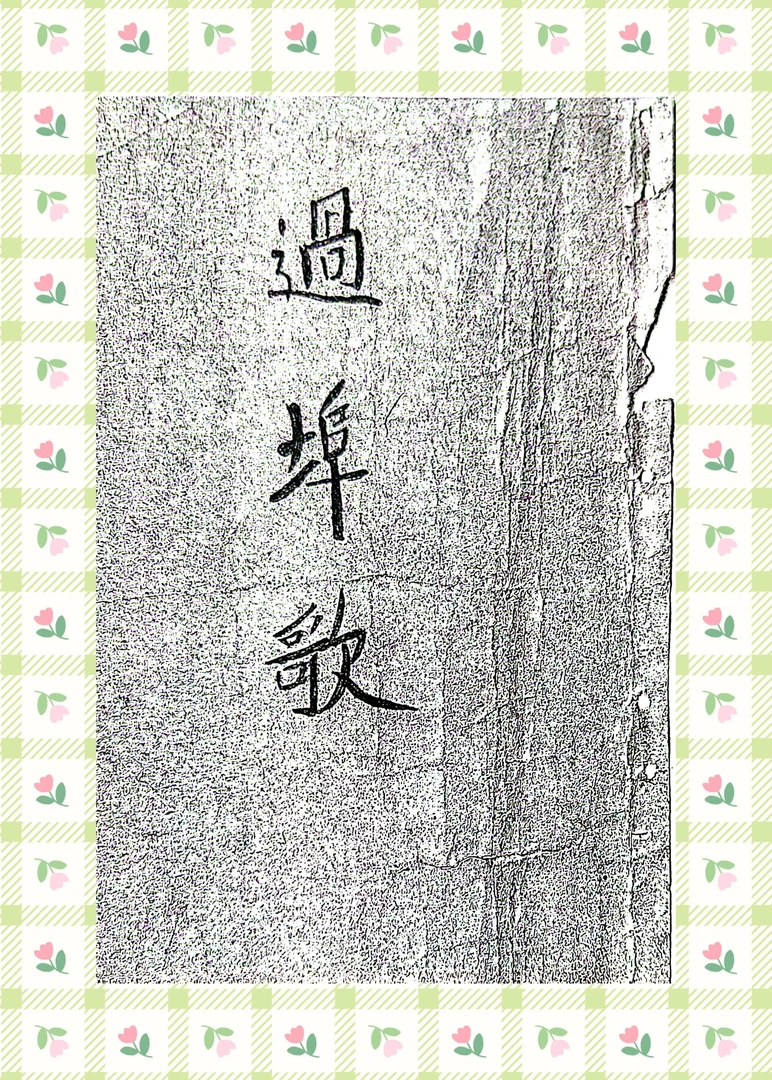 過埠歌